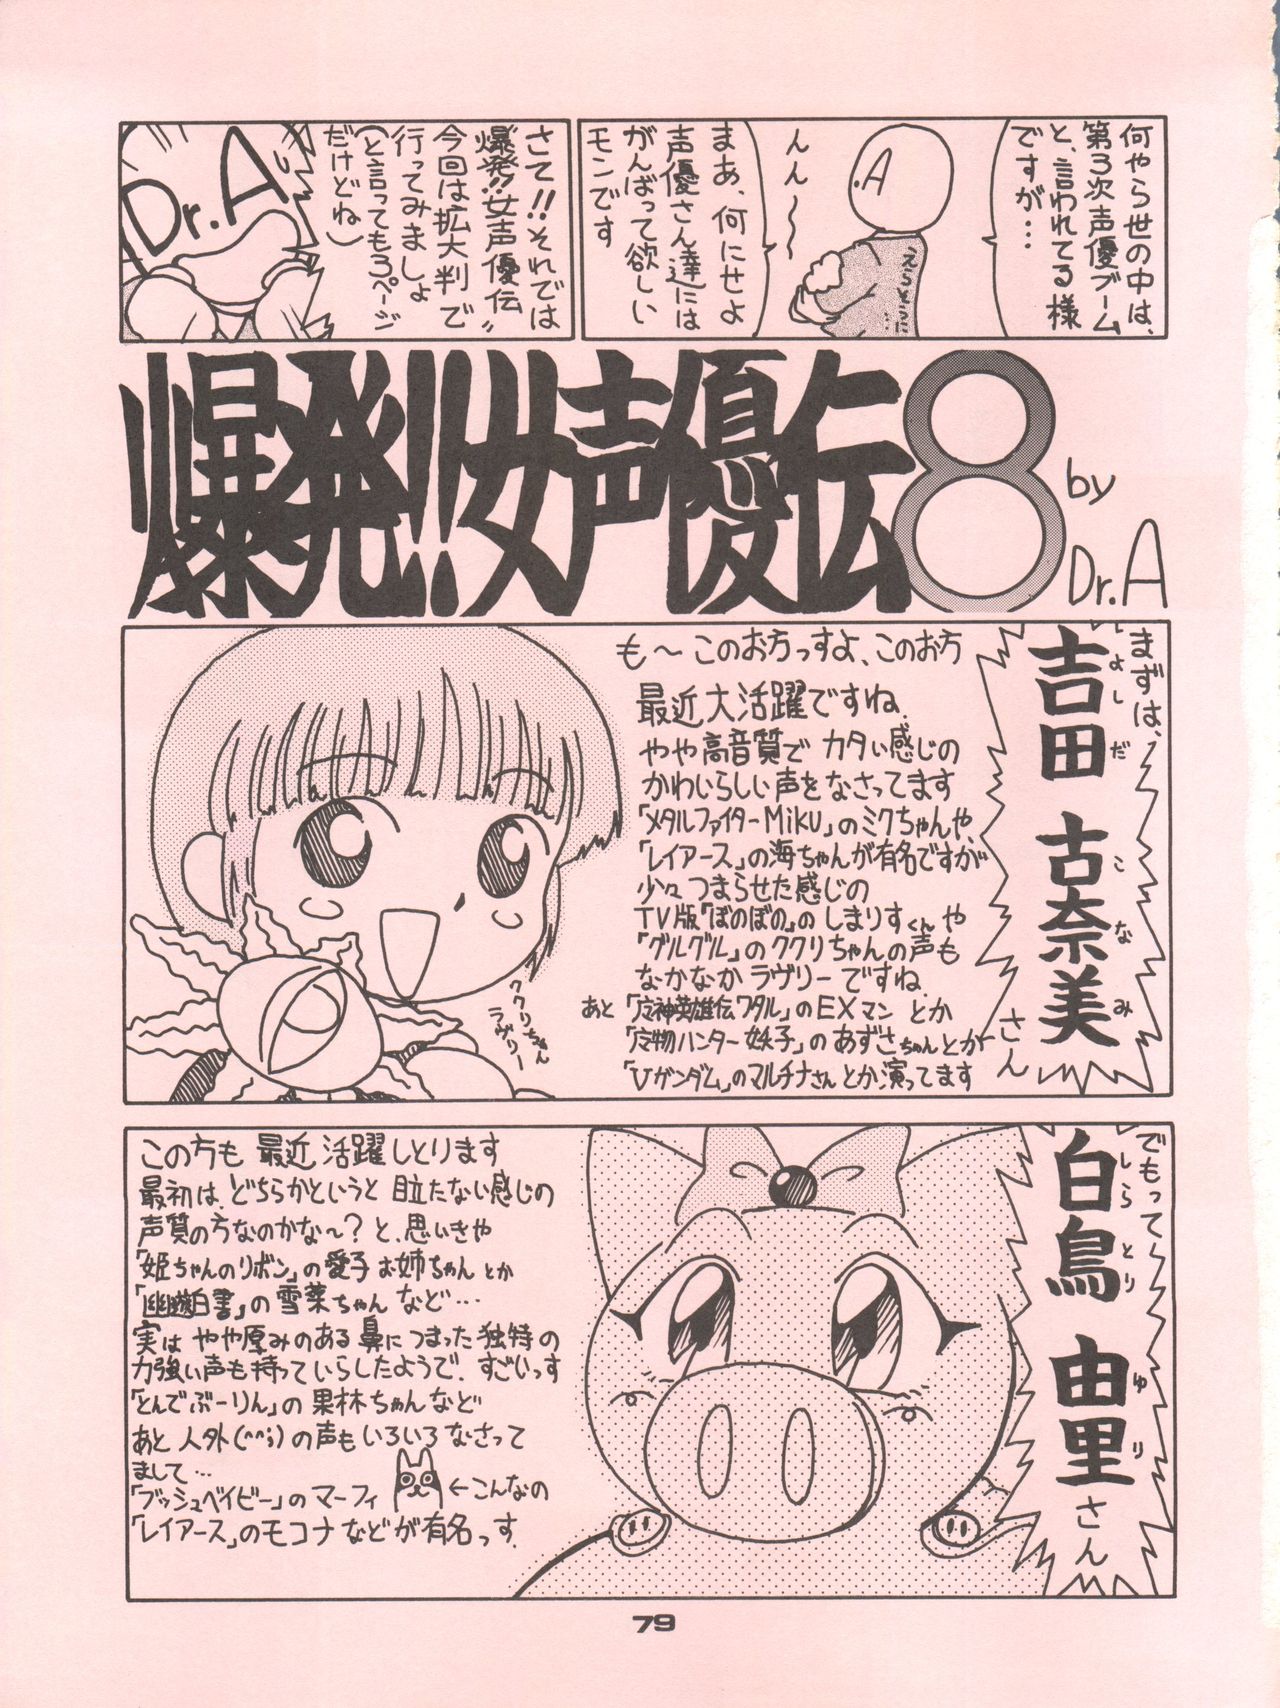 何やら世の中は、
第3次声優ブーム
と、言われてる様
ですが…
.A
えらそうに
んん〜〜
まあ、何にせよ
声優さん達には
がんばって欲しい
モンです
さて!!それでは
〝爆発!!女声優伝〟
今回は拡大判で
行ってみましょ
(と言っても3ページ
だけどね)
Dr.A
爆発!!女声優伝8
by
Dr.A
まずは、
吉田 古奈美さん
よしだ こなみ
も〜このお方っすよ、このお方
最近大活躍ですね
やや高音質で カタい感じの
かわいらしい声をなさってます
「メタルファイターMiku」のミクちゃんや、
「レイアース」の海ちゃんが有名ですが
少々つまらせた感じの
TV版『ぼのぼの』のしまりすくんや
「グルグル」のククリちゃんの声も
なかなかラヴリーですね
あと「魔神英雄伝ワタル」のEXマン とか
「魔物ハンター妖子」のあずさちゃんとか
「Vガンダム」のマルチナさんとか演ってます
ククリちゃん
ラヴリー
でもって
白鳥 由里さん
しらとり ゆり
この方も 最近 活躍しとります
最初は どちらかというと 目立たない感じの
声質の方なのかな〜?と、思いきや
「姫ちゃんのリボン」の愛子お姉ちゃんとか
「幽遊白書」の雪菜ちゃんなど…
実は やや厚みのある 鼻につまった独特の
力強い声も持っていらしたようで、すごいっす
「とんでぶーりん」の果林ちゃんなど
あと 人外(^^;)の声もいろいろなさって
まして…
「ブッシュベイビー」のマーフィ ←こんなの
「レイアース」のモコナなどが有名っす
79